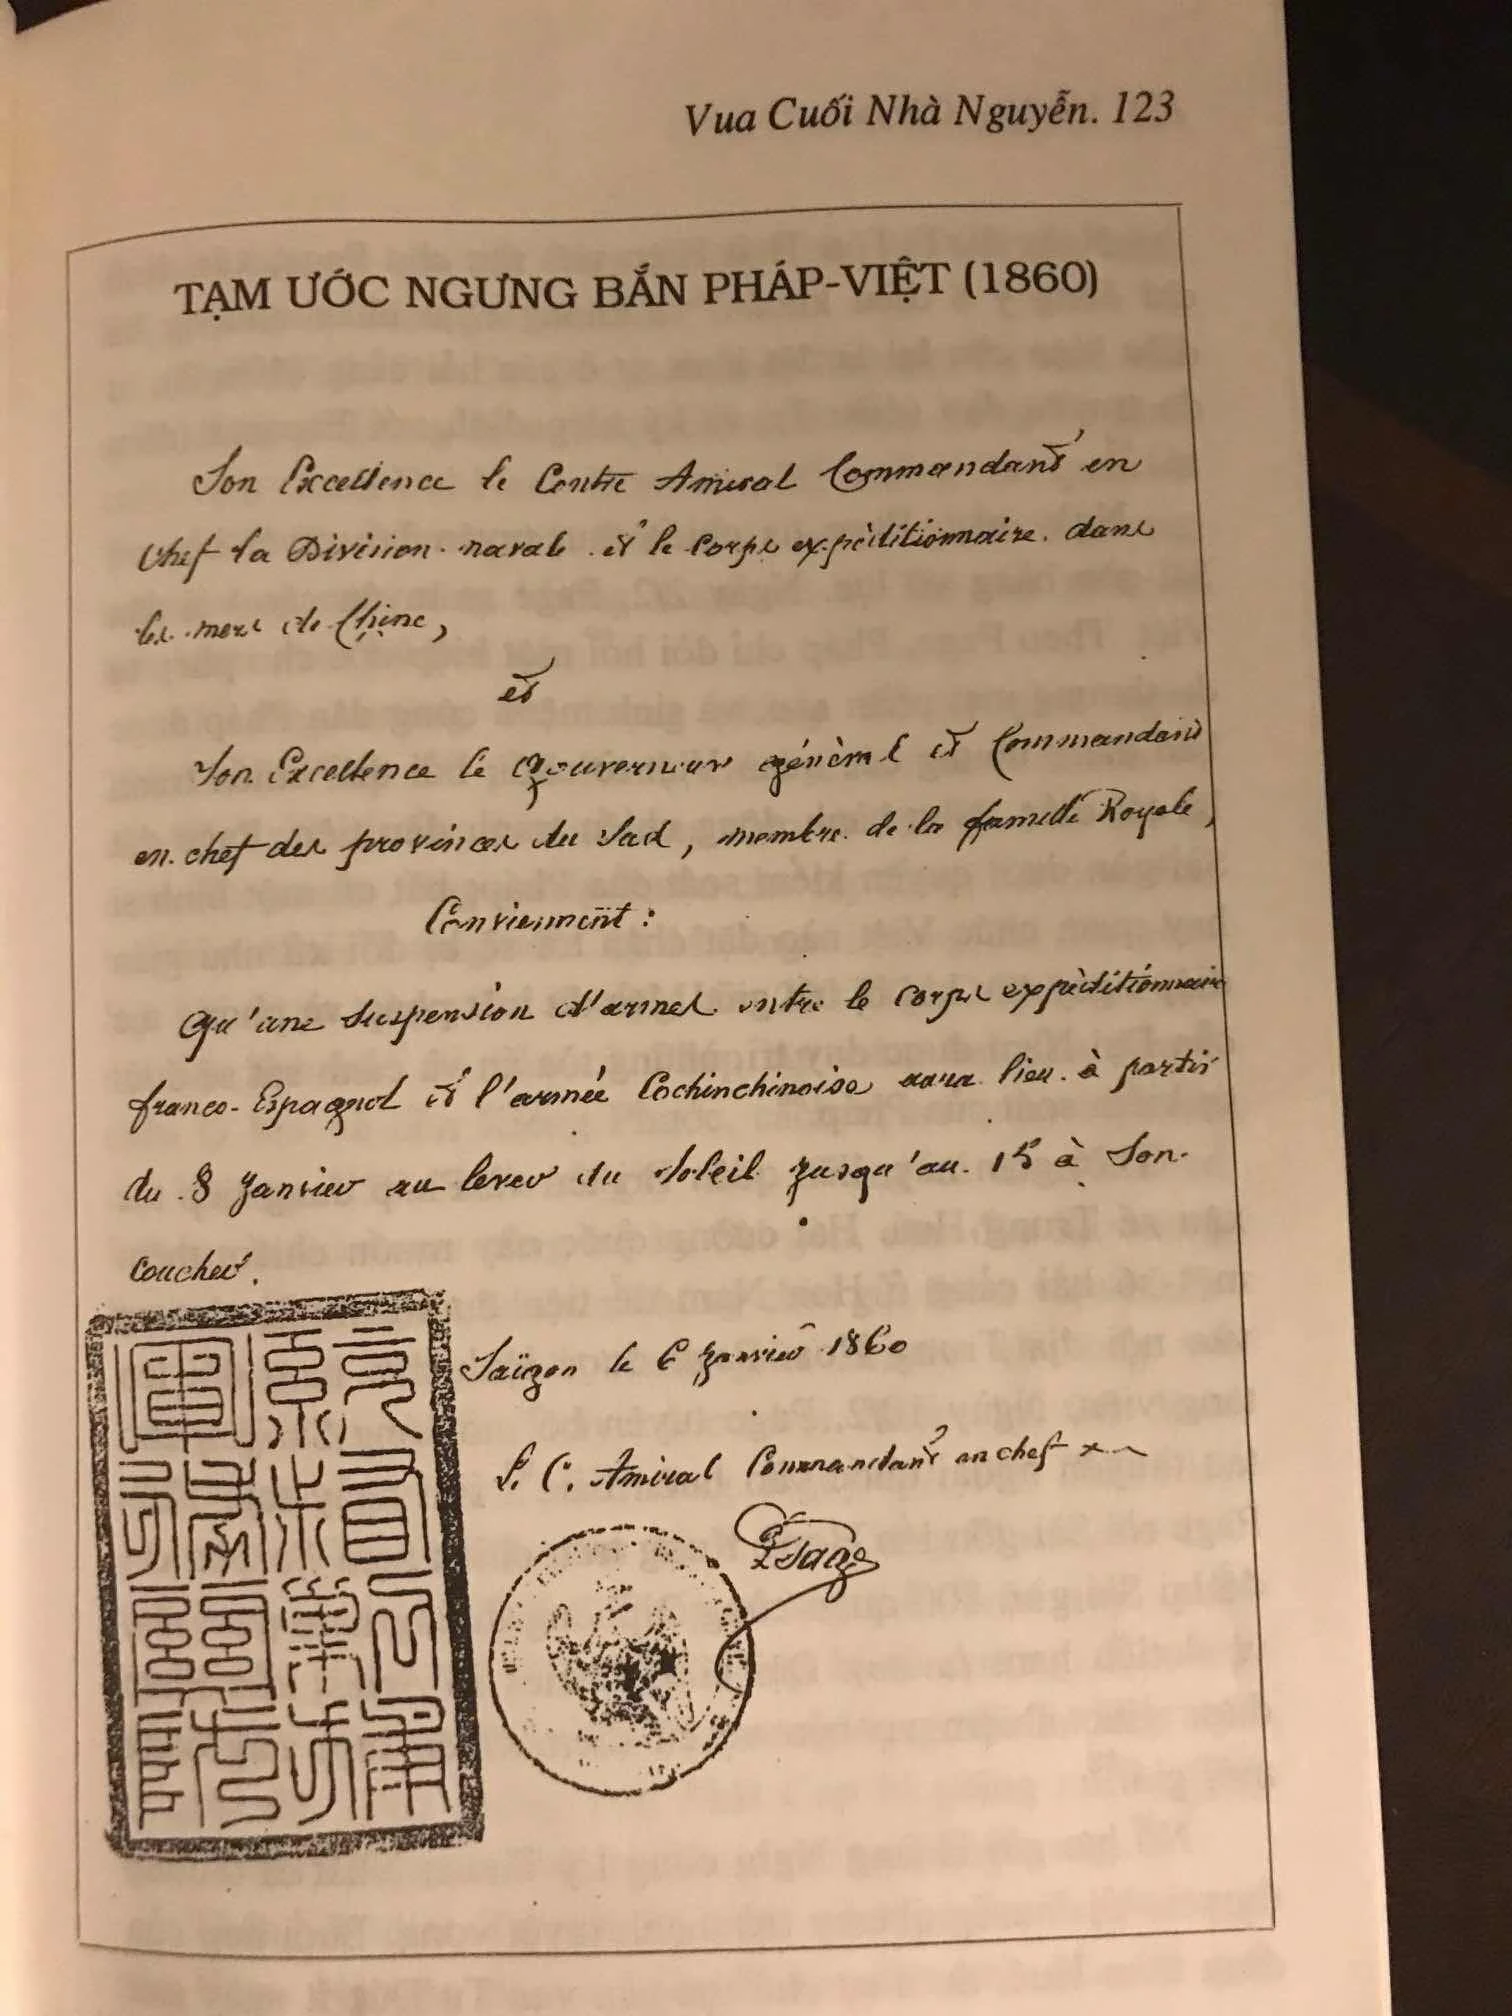 Vua Cuối Nhà Nguyễn. 123
TẠM ƯỚC NGƯNG BẮN PHÁP-VIỆT (1860)
Son Excellence le Contre Amiral Commandant en
chef la Division navale et le Corps expéditionnaire dans
les mers de Chine,
et
Son Excellence le Gouverneur général et Commandant
en chef des provinces du Sud, membre de la famille Royale,
Conviennent :
Qu'une suspension d'armes entre le Corps expéditionnaire
franco-Espagnol et l'armée Cochinchinoise aura lieu à partir
du 8 Janvier au lever du Soleil jusqu'au 15 à Son
coucher.
Saïgon le 6 Janvier 1860
L. C. Amiral Commandant en chef
Page